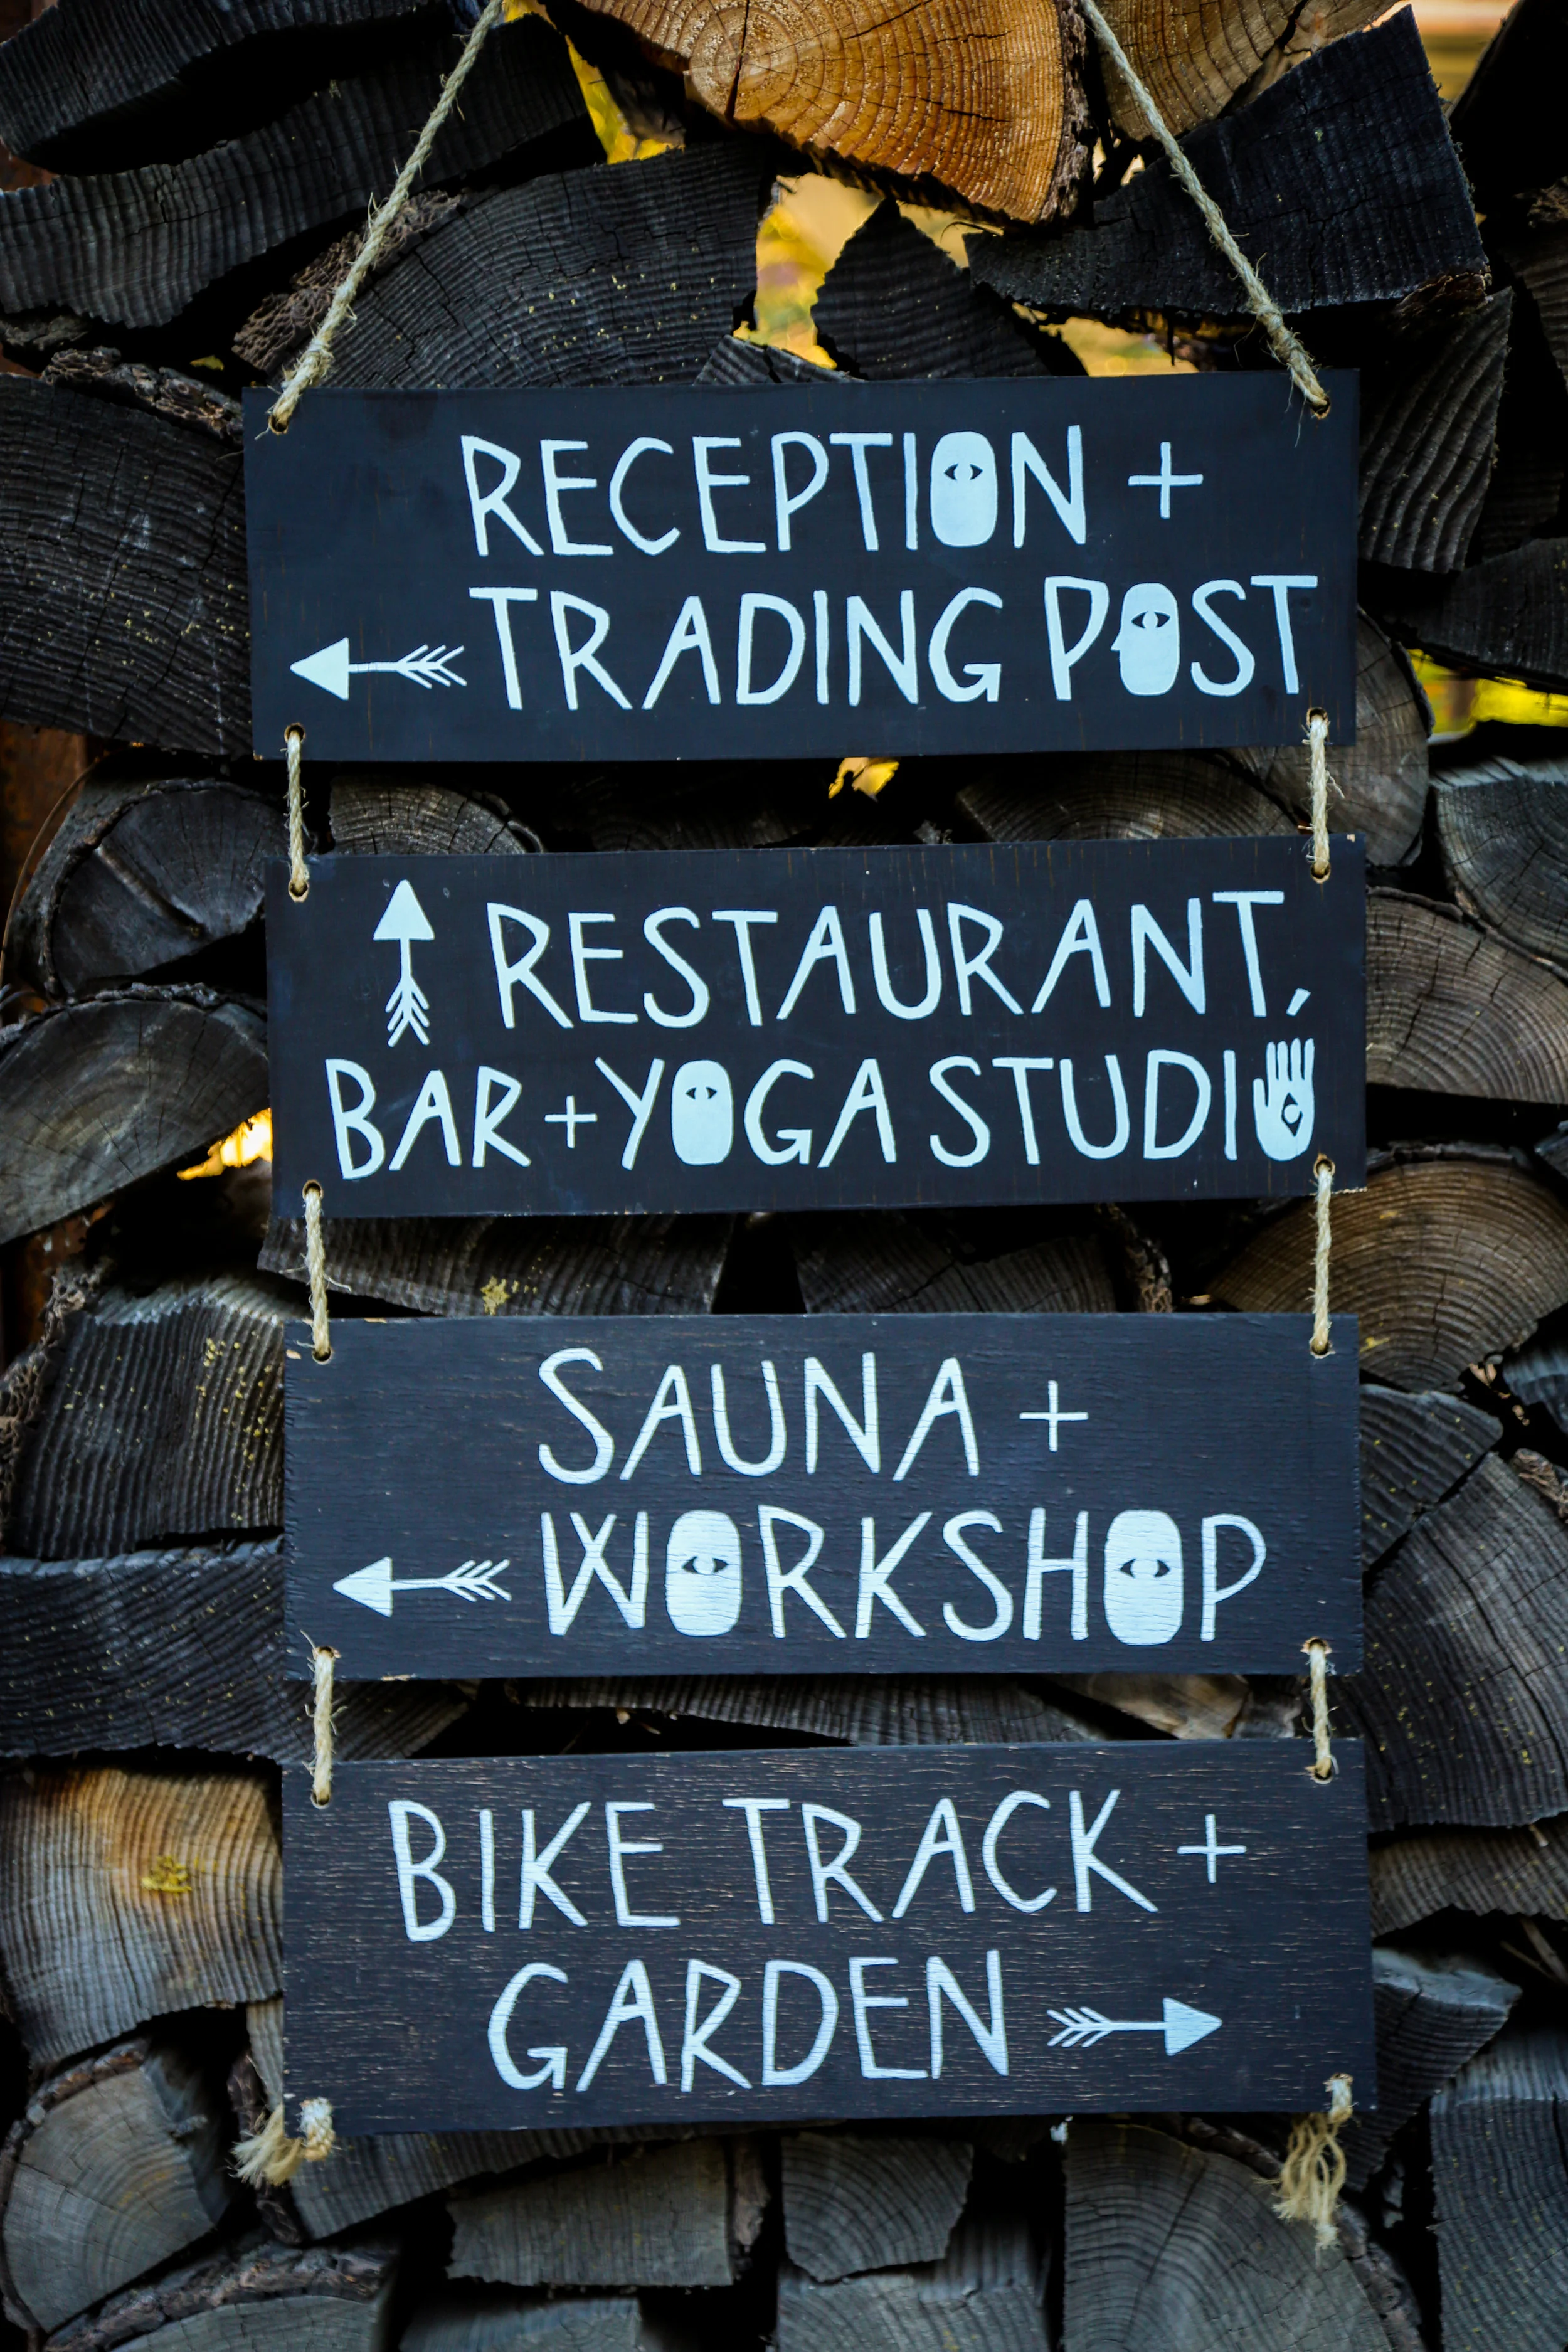 RECEPTION +
TRADING POST
RESTAURANT,
BAR + YOGA STUDIO
SAUNA +
WORKSHOP
BIKE TRACK +
GARDEN